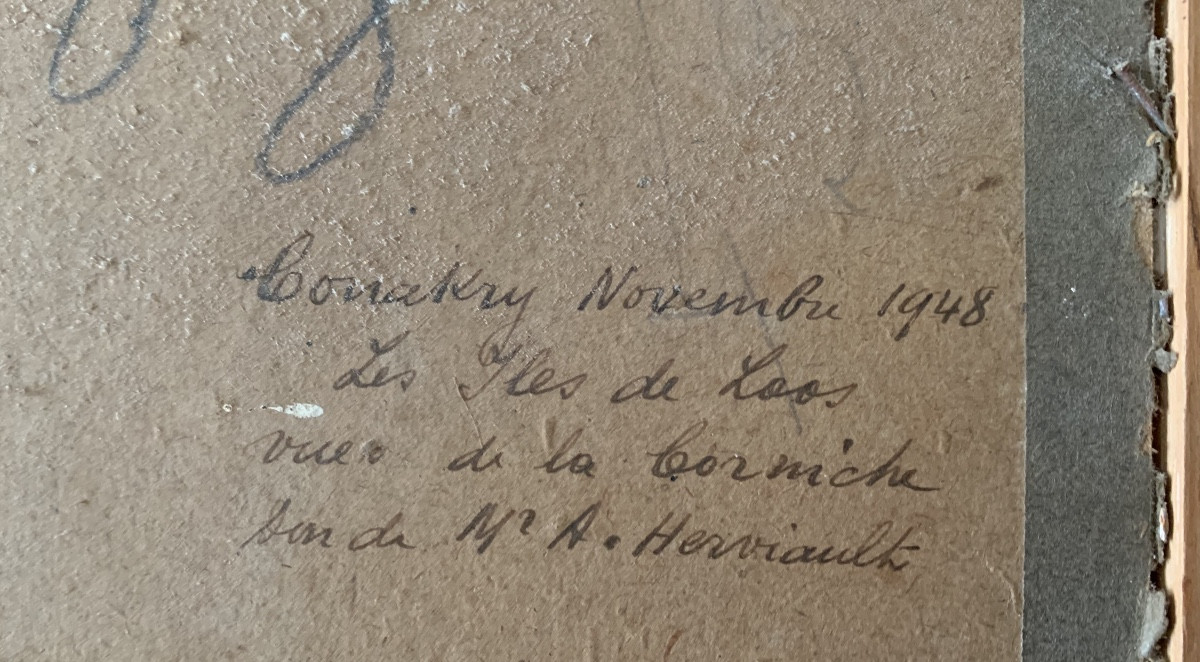 Conakry Novembre 1948
Les Iles de Loos
vues de la Corniche
don de Mr A. Herviault